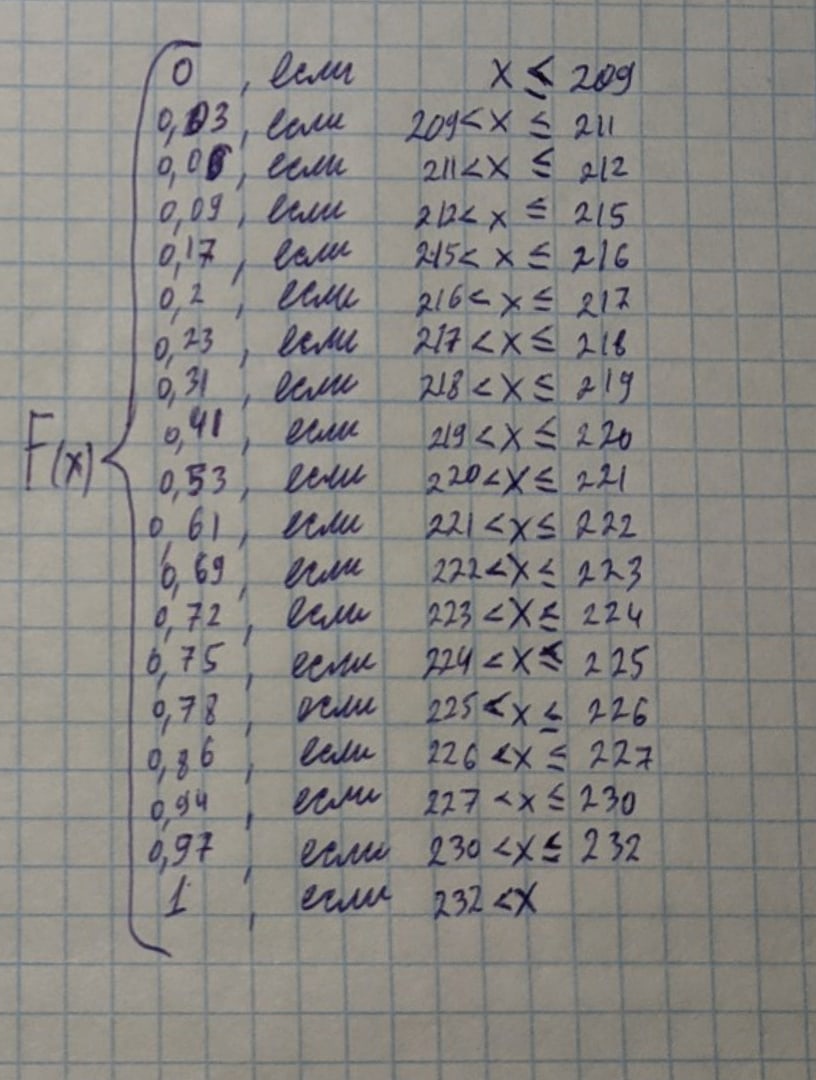 0, если x ≤ 209
0,03, если 209 < x ≤ 211
0,06, если 211 < x ≤ 212
0,09, если 212 < x ≤ 215
0,17, если 215 < x ≤ 216
0,2, если 216 < x ≤ 217
0,23, если 217 < x ≤ 218
0,31, если 218 < x ≤ 219
0,41, если 219 < x ≤ 220
F(x) { 0,53, если 220 < x ≤ 221
0,61, если 221 < x ≤ 222
0,69, если 222 < x ≤ 223
0,72, если 223 < x ≤ 224
0,75, если 224 < x ≤ 225
0,78, если 225 < x ≤ 226
0,86, если 226 < x ≤ 227
0,94, если 227 < x ≤ 230
0,97, если 230 < x ≤ 232
1, если 232 < x